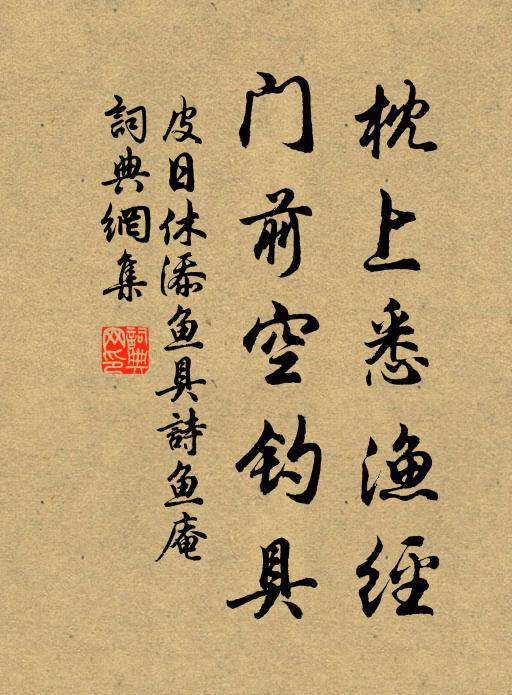 枕上悉漁經
门前空钓具
皮日休添鱼具詩鱼庵
詞典網集
詞典网印